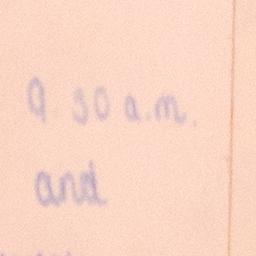 9 30 a.m.
and